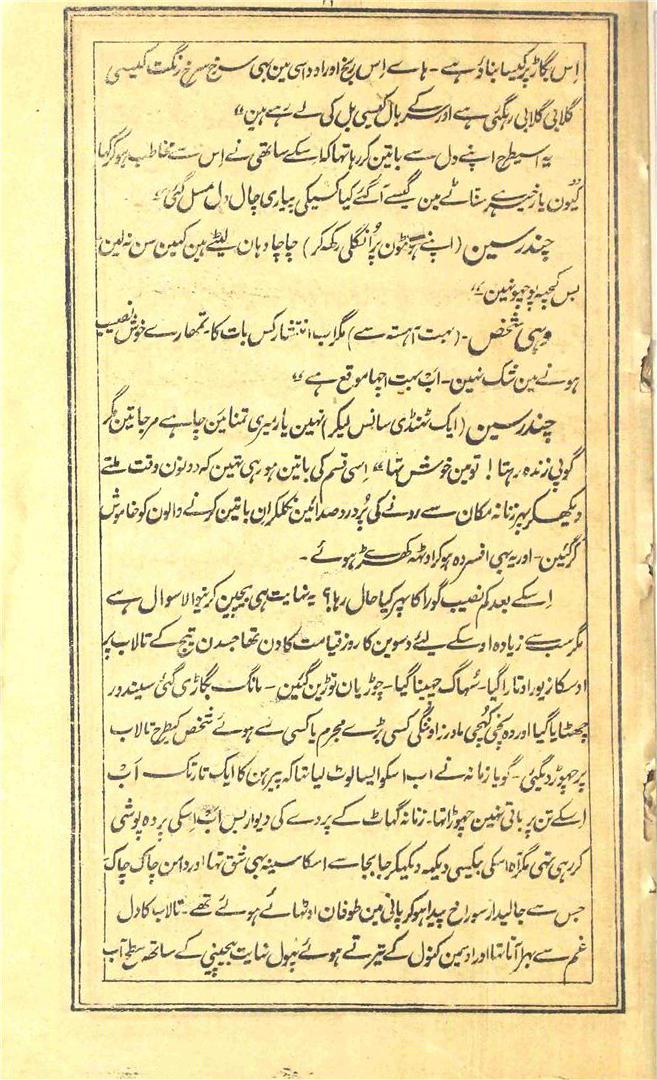 اِس بگاڑ پر کیسا بناؤ ہے ۔ ہاے اِس رنج اور اوداسی مین بہی سرخ سرخ رنگت کیسی
گلابی گلابی رہگئی ہے اور سَر کے بال کیسی بل کی لے رہے ہین "
یہ اسیطرح اپنے دل سے باتین کر رہا تہا کہ اِسکے ساتھی نے اِس سے مخاطب ہوکر کہا
کیون یار خیر ہے سناٹے مین کیسے آگئے کیا کسیکی پیاری چال دل مسل گئی "
چندر سین (اپنے ہونٹون پر اُنگلی رکھہ کر) چاچا وہان لیٹے ہین کہین سن نہ لین
بس کچھہ پوچھو نہین ۔ "
وہی شخص ۔ (بہت آہستہ سے) مگر اب انتشار کس بات کا ۔ تمھارے خوش نصیب
ہونے مین شک نہین ۔ اب بہت اچہا موقع ہے "
چندر سین (ایک ٹہنڈی سانس لیکر) نہین یار میری تمنائین چاہے مرجاتین مگر
گوپی زندہ رہتا ! تو مین خوش تہا " اِسی قسم کی باتین ہو رہی تہین کہ دونون وقت ملتے
دیکھکر پھر زنانہ مکان سے رونے کی پُر درد صدائین نکلکر اِن باتین کرنے والون کو خاموش
کرگئین ۔ اور یہ بہی افسردہ ہوکر اوٹھہ کھڑے ہوئے ۔
اِسکے بعد کم نصیب گورا کا پہر کیا حال رہا ؟ یہ نہایت ہی بیچین کرنیوالا سوال ہے
مگر سب سے زیادہ اوسکے لیئے دسوین کا روز قیامت کا دن تھا جسدن تیج کے تالاب پر
اوسکا زیور اوتارا گیا ۔ سُہاگ چہینا گیا ۔ چوڑیان توڑین گئین ۔ مانگ بگاڑی گئی سیندور
چھٹایا گیا اور وہ کہُچی مادرزاد ننگی کسی بڑے مجرم یا کسی سے ہوئے شخص کیطرح تالاب
پر چہوڑ دیگئی ۔ گویا زمانہ نے اب اسکو ایسا لوٹ لیا تہا کہ پیرہن کا ایک تار تک اب
اِسکے تن پر باقی نہین چہوڑا تہا ۔ زنانہ گھاٹ کے پردے کی دیوار بس اب اِسکی پردہ پوشی
کر رہی تہی مگر آہ اسکی بیکسی دیکھہ دیکھکر جا بجا سے اسکا سینہ بہی شق تہا اور دامن چاک چاک
جس سے جالیدار سوراخ پیدا ہوکر پانی مین طوفان اوٹھائے ہوئے تھے ۔ تالاب کا دل
غم سے بہر آتا تہا اور اوسمین کنول کے تیرتے ہوئے پہول نہایت بیچینی کے ساتھہ سطح آب